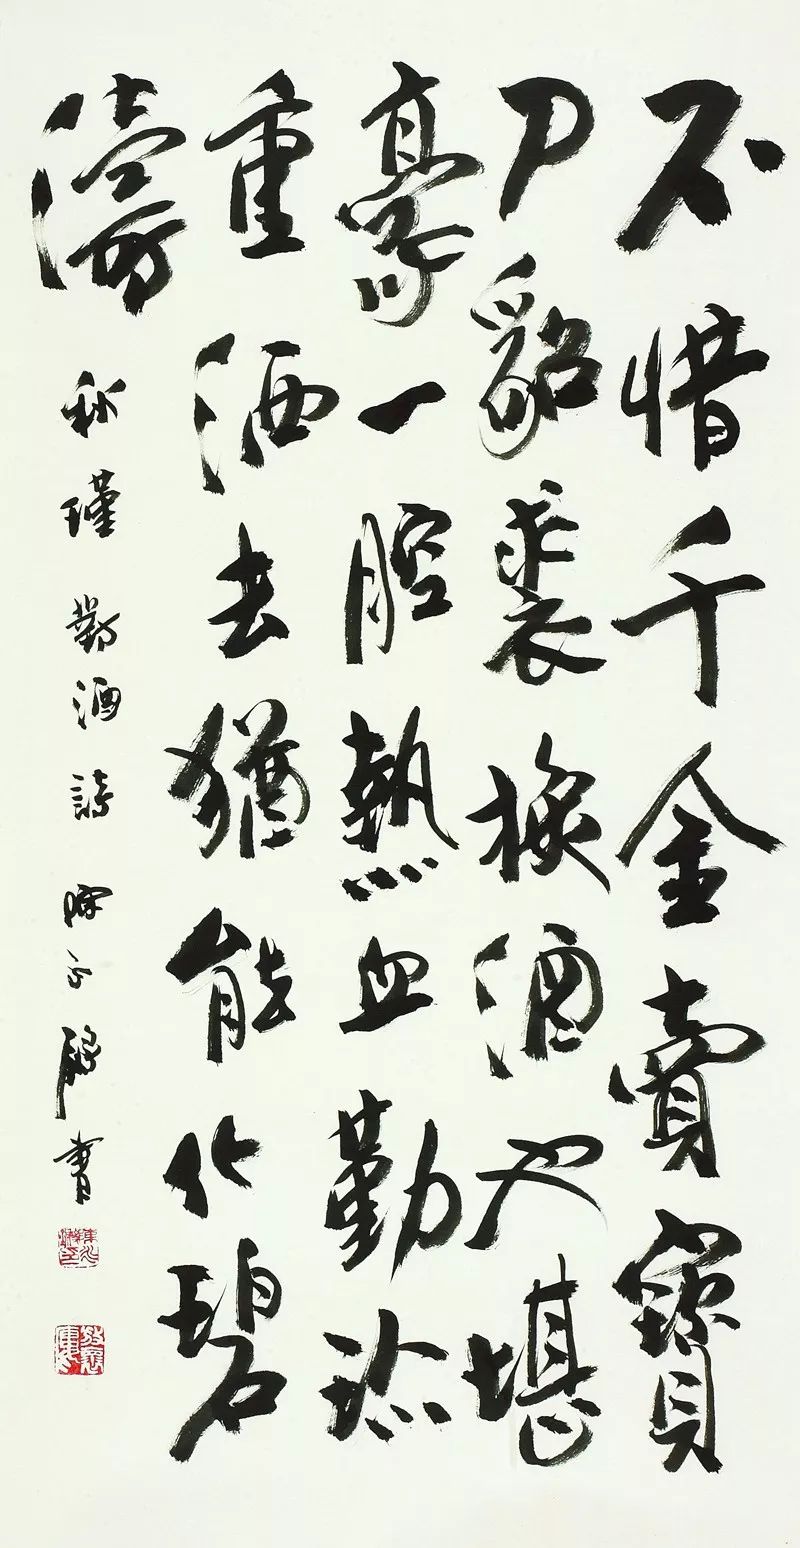 不惜千金賣寶
刀貂裘換酒也堪
豪一腔熱血勤珍
重洒去猶能化碧
濤
秋瑾對酒詩 陳書